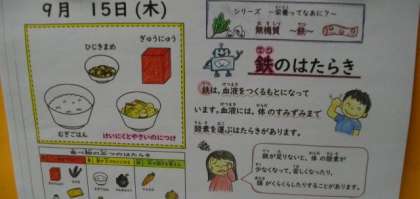 9月 15日(木)
ひじきまめ
ぎゅうにゅう
むぎごはん
けいにくとやさいのにつけ
シリーズ ～栄養ってなあに?～
無機質 ～鉄～
鉄のはたらき
鉄は、血液をつくるもとになって
います。血液には、体のすみずみまで
酸素を運ぶはたらきがあります。
鉄が足りないと、体の酸素が
少なくなって、苦しくなったり、
頭がくらくらしたりすることがあります。